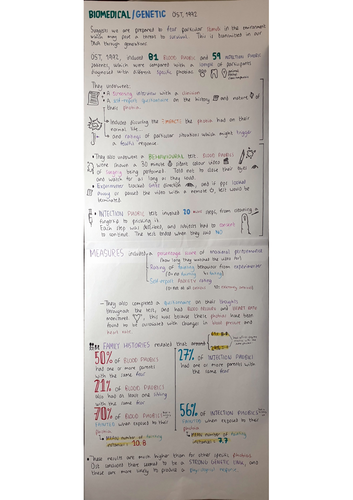 BIOMEDICAL/GENETIC OST, 1992
Suggests we are prepared to fear particular in the environment
which may pose a threat to survival. This is transmitted in our
DNA through generations
OST, 1992, included 81 BLOOD PHOBICS and 59 INJECTION PHOBIC
patients, which were compared with a sample of participants
diagnosed with different specific phobias
They underwent:
• A screening interview with a clinician
• A self-report questionnaire on the history and nature of
their phobia
• Included discussing the IMPACTS the phobia had on their
normal life
• and ratings of particular situations which might trigger
a fearful response
• They also underwent a BEHAVIOURAL test. BLOOD PHOBICS
were shown a 30 minute silent colour video
of surgery being performed. Told not to close their eyes
and watch for as long as they could.
• Experimenter tracked GAZE direction, and if pps looked
away or paused the video with a remote, test would be
terminated
• INJECTION PHOBIC test involved 20 steps, from cleaning
fingertip to pricking it
Each step was described, and
to The test ended when they said NO
MEASURES included a percentage score of maximal performance
(how long they watched the video for)
Rating of fainting behaviour from experimenter
(0 = no fainting fainting)
Self-report ANXIETY rating
They also completed a questionnaire on their thoughts
throughout the test, and had BLOOD PRESSURE and HEART RATE
monitored. this was because their phobias have been
found to be associated with changes in blood pressure and
heart rate
FAMILY HISTORIES revealed that around
50% of BLOOD PHOBICS
had one or more parents
with the same fear
27% of INJECTION PHOBICS
had one or more parents with
the same fear
21% of BLOOD PHOBICS
also had at least one sibling
with the same fear
70% of BLOOD PHOBICS
FAINTED when exposed to their
phobia
↳ Mean number of fainting
instances = 10.8
56% of INJECTION PHOBICS
FAINTED when exposed to their
phobia
↳ Mean number of fainting
instances = 7.7
• These results are much higher than for other specific phobias
Ost concluded there seemed to be a STRONG GENETIC LINK, and
these are more likely to produce a physiological response